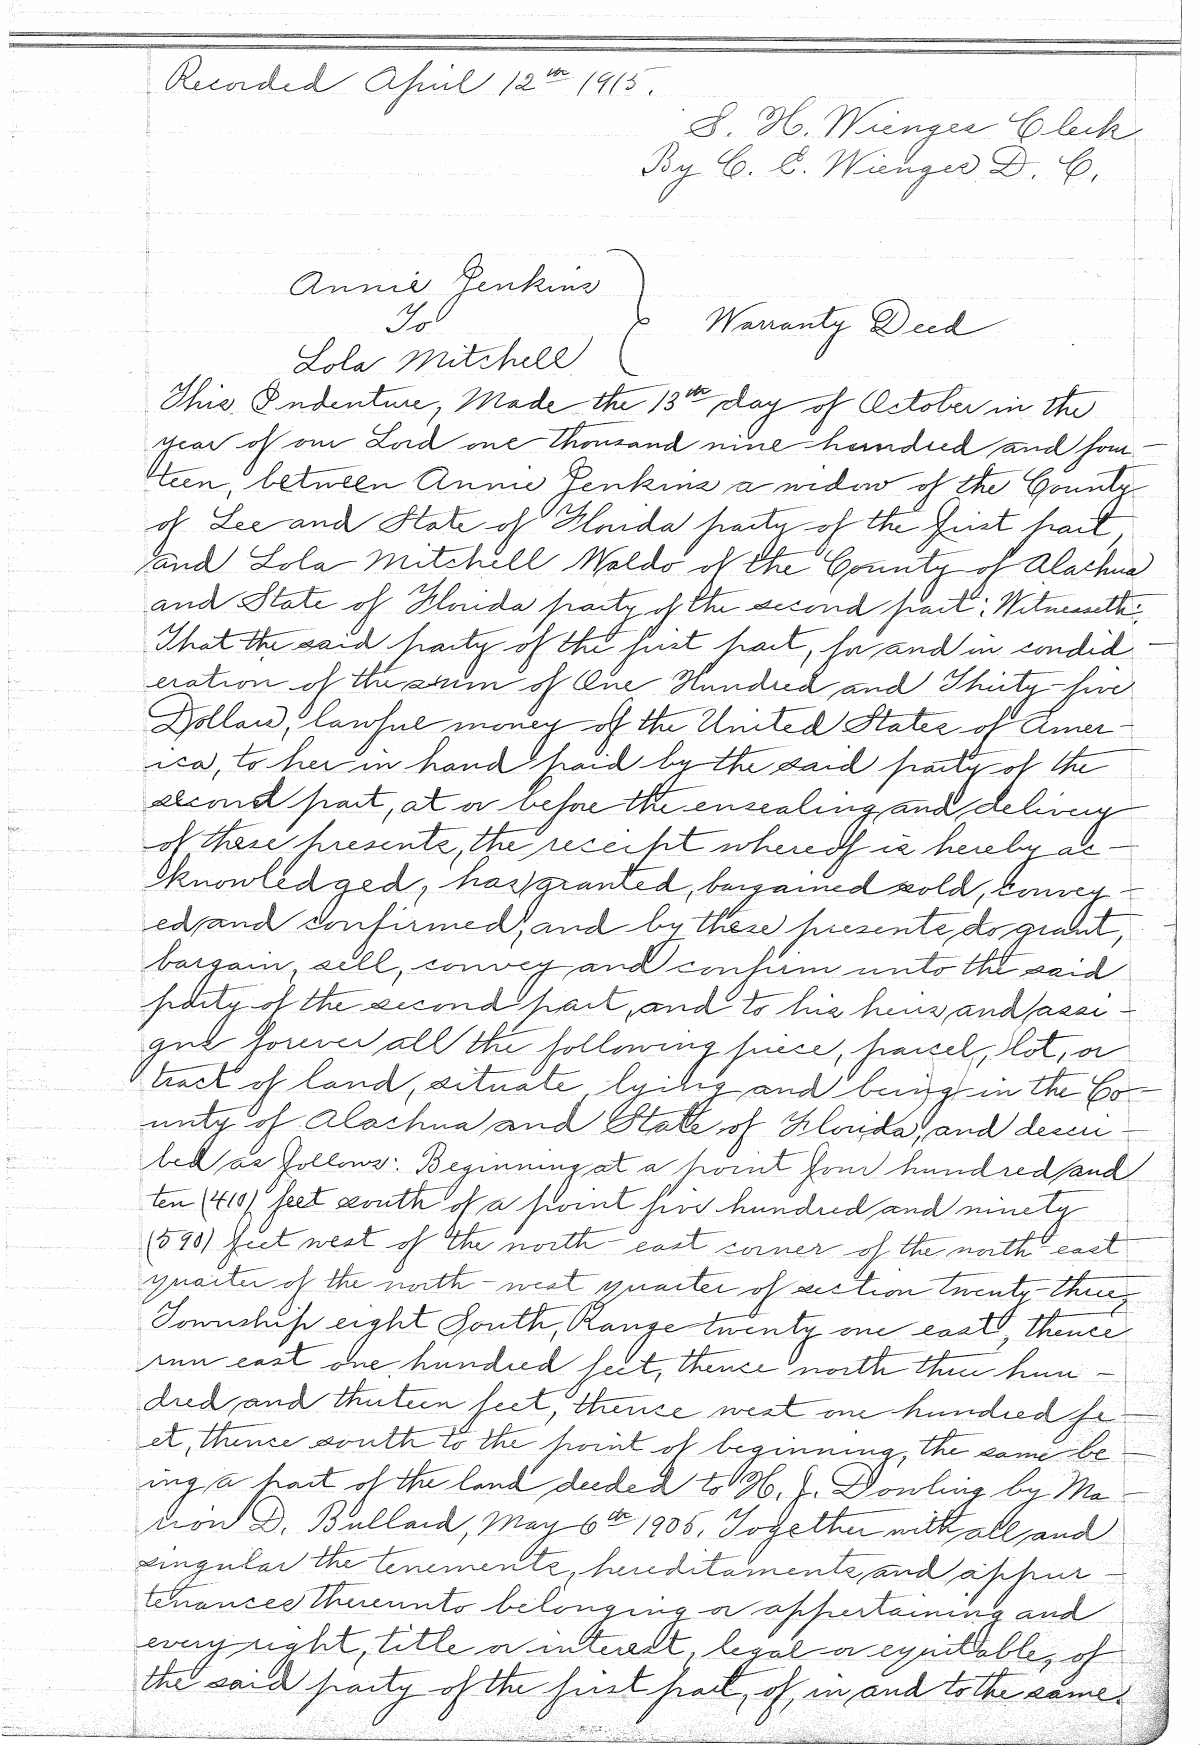 Recorded April 12th 1915.
S. H. Wienges Clerk
By C. E. Wienges D. C.
Annie Jenkins
To
Warranty Deed
Lola Mitchell
This Indenture, Made the 13th day of October in the
year of our Lord one thousand nine hundred and four-
teen, between Annie Jenkins a widow of the County
of Lee and State of Florida party of the first part,
and Lola Mitchell Waldo of the County of Alachua
and State of Florida party of the second part: Witnesseth:
That the said party of the first part, for and in condid-
eration of the sum of One Hundred and Thirty-five
Dollars, lawful money of the United States of Amer-
ica, to her in hand paid by the said party of the
second part, at or before the ensealing and delivery
of these presents, the receipt whereof is hereby ac-
knowledged, has granted, bargained sold, convey-
ed and confirmed, and by these presents do grant,
bargain, sell, convey and confirm unto the said
party of the second part, and to his heirs and assi-
gns forever all the following piece, parcel, lot, or
tract of land, situate, lying and being in the Co-
unty of Alachua and State of Florida, and descri-
bed as follows: Beginning at a point four hundred and
ten (410) feet south of a point five hundred and ninety
(590) feet west of the north-east corner of the north-east
quarter of the north-west quarter of section twenty-three,
Township eight South, Range twenty one east, thence
run east one hundred feet, thence north three hun-
dred and thirteen feet, thence west one hundred fe-
et, thence south to the point of beginning, the same be-
ing a part of the land deeded to H. J. Dowling by Ma-
rion D. Bullard, May 6th 1905. Together with all and
singular the tenements, hereditaments and appur-
tenances thereunto belonging or appertaining and
every right, title or interest, legal or equitable, of
the said party of the first part, of, in and to the same.